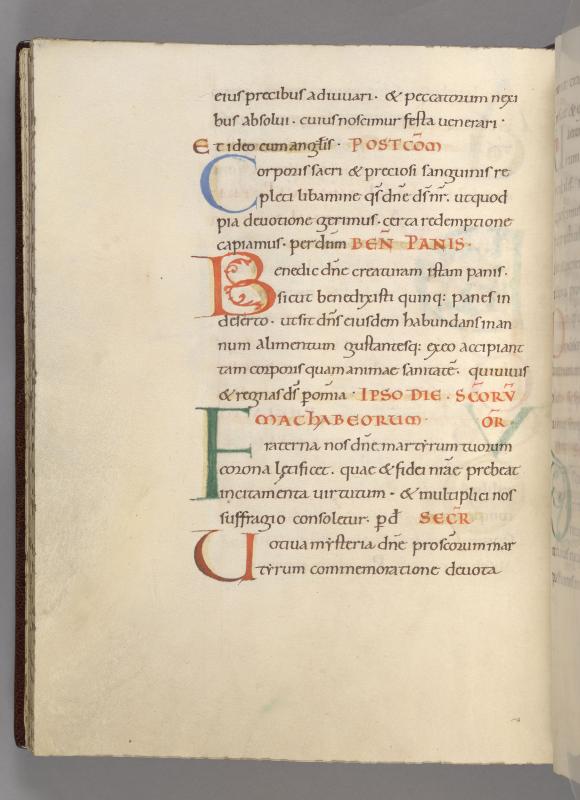 eius precibus adiuuari · & peccatorum nexi
bus absolui · cuius noscimur festa uenerari ·
Et ideo cum anglis · POSTCŌM
Corporis sacri & preciosi sanguinis re
pleti libamine qs̄ dn̄e ds̄ nr̄ · ut quod
pia deuotione gerimus · certa redemptione
capiamus · per dn̄m BEN̄ PANIS ·
Benedic dn̄e creaturam istam panis ·
sicut benedixisti quinq: panes in
deserto · ut sit dn̄s eiusdem habundans in an
num alimentum gustantesq: ex eo accipiant
tam corporis quam animae sanitatē · qui uiuis
& regnas ds̄ p om̄ia · IPSO DIE · SC̄ORV̄
MACHABEORUM · OR̄
Fraterna nos dn̄e martyrum tuorum
corona lętificet · quae & fidei nr̄ae prebeat
incitamenta uirtutum · & multiplici nos
suffragio consoletur · p̄ đ SECR̄
Uotiua mysteria dn̄e pro sc̄orum mar
tyrum commemoratione deuota